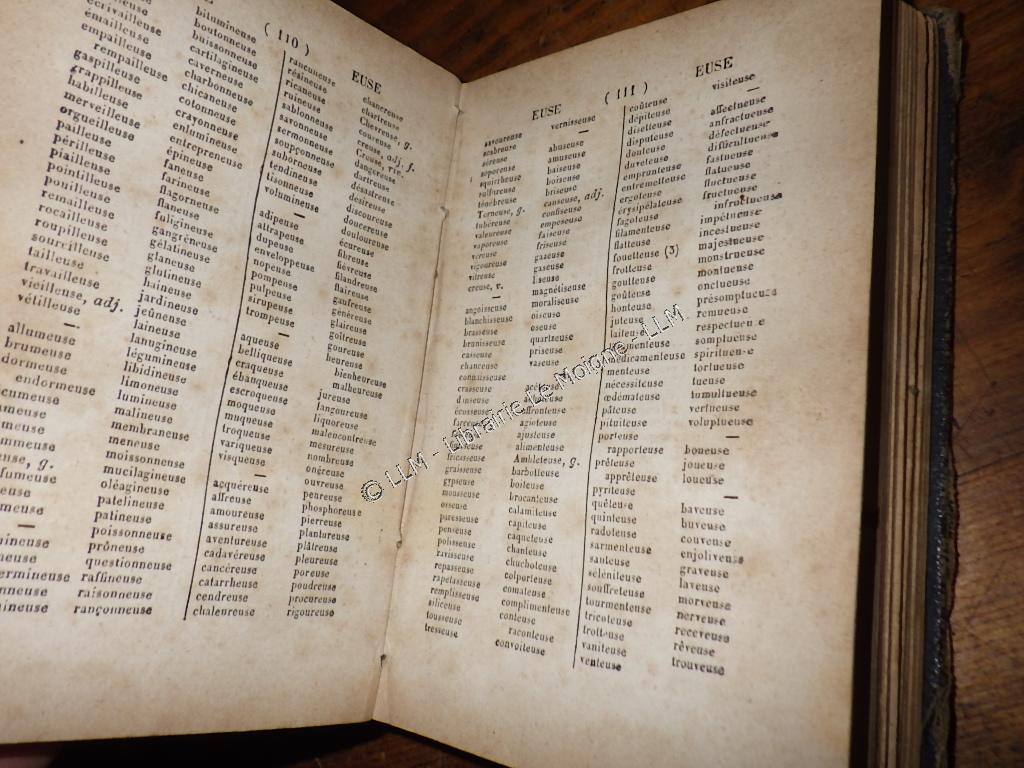 ( 110 )
EUSE
écrivailleuse
émailleuse
empailleuse
rempailleuse
gaspilleuse
grappilleuse
habilleuse
merveilleuse
orgueilleuse
pailleuse
périlleuse
piailleuse
pointilleuse
pouilleuse
remailleuse
rocailleuse
roupilleuse
sourcilleuse
tailleuse
travailleuse
vieilleuse, adj.
vétilleuse
—
allumeuse
brumeuse
dormeuse
endormeuse
bitumineuse
boutonneuse
buissonneuse
cartilagineuse
caverneuse
charbonneuse
chicaneuse
cotonneuse
crayonneuse
enlumineuse
entrepreneuse
épineuse
faneuse
farineuse
flagorneuse
flaneuse
fuligineuse
gangréneuse
gélatineuse
glaneuse
glutineuse
haineuse
jardineuse
jeûneuse
laineuse
lanugineuse
légumineuse
libidineuse
limoneuse
lumineuse
malineuse
membraneuse
meneuse
moissonneuse
mucilagineuse
oléagineuse
patelineuse
patineuse
poissonneuse
prôneuse
questionneuse
raffineuse
raisonneuse
rançonneuse
rancuneuse
résineuse
ricaneuse
ruineuse
sablonneuse
savonneuse
sermonneuse
soupçonneuse
suborneuse
tendineuse
tisonneuse
volumineuse
—
adipeuse
attrapeuse
dupeuse
enveloppeuse
nopeuse
pompeuse
pulpeuse
sirupeuse
trompeuse
—
aqueuse
belliqueuse
craqueuse
ébanqueuse
escroqueuse
moqueuse
muqueuse
troqueuse
variqueuse
visqueuse
—
acquéreuse
affreuse
amoureuse
assureuse
aventureuse
cadavéreuse
cancéreuse
catarrheuse
cendreuse
chaleureuse
chancreuse
chartreuse
Chevreuse, g.
coureuse
creuse, adj. f.
Creuse, riv.
dangereuse
dartreuse
désastreuse
desireuse
discoureuse
doucereuse
douloureuse
écureuse
fibreuse
fiévreuse
filandreuse
flaireuse
gaufreuse
généreuse
glaireuse
goitreuse
goureuse
heureuse
bienheureuse
malheureuse
jureuse
langoureuse
liquoreuse
malencontreuse
mesureuse
nombreuse
onéreuse
ouvreuse
peureuse
phosphoreuse
pierreuse
plantureuse
plâtreuse
pleureuse
poreuse
poudreuse
procureuse
rigoureuse
EUSE
( 111 )
EUSE
savoureuse
scabreuse
séreuse
soporeuse
squirrheuse
sulfureuse
ténébreuse
Terneuse, g.
tubéreuse
valeureuse
vaporeuse
verreuse
vigoureuse
vitreuse
creuse, v.
—
angoisseuse
blanchisseuse
brasseuse
brunisseuse
casseuse
chanceuse
connaisseuse
crasseuse
danseuse
graisseuse
gypseuse
mousseuse
osseuse
paresseuse
penseuse
polisseuse
ravisseuse
repasseuse
rapetasseuse
remplisseuse
siliceuse
tousseuse
tresseuse
vernisseuse
—
abuseuse
amuseuse
baiseuse
boiseuse
briseuse
causeuse, adj.
confiseuse
empeseuse
faiseuse
friseuse
gazeuse
gaseuse
liseuse
magnétiseuse
moraliseuse
oiseuse
oseuse
quartzeuse
priseuse
vaseuse
—
agioteuse
ajusteuse
alimenteuse
Ambleteuse, g.
barboteuse
boiteuse
brocanteuse
calamiteuse
capiteuse
caqueteuse
chanteuse
chuchoteuse
colporteuse
comateuse
complimenteuse
conteuse
raconteuse
convoiteuse
coûteuse
dépiteuse
disetteuse
disputeuse
douteuse
duveteuse
emprunteuse
entremetteuse
ergoteuse
érysipélateuse
fagoteuse
filamenteuse
flatteuse
fouetteuse (3)
frotteuse
goutteuse
goûteuse
honteuse
juteuse
laiteuse
médicamenteuse
menteuse
nécessiteuse
œdémateuse
pâteuse
pituiteuse
porteuse
rapporteuse
prêteuse
apprêteuse
pyriteuse
quêteuse
quinteuse
radoteuse
sarmenteuse
sauteuse
séléniteuse
souffreteuse
tourmenteuse
tricoteuse
trotteuse
vaniteuse
venteuse
visiteuse
—
affectueuse
anfractueuse
défectueuse
difficultueuse
fastueuse
flatueuse
fluctueuse
fructueuse
infructueuse
impétueuse
incestueuse
majestueuse
monstrueuse
montueuse
onctueuse
présomptueuse
remueuse
respectueuse
somptueuse
spiritueuse
tortueuse
tueuse
tumultueuse
vertueuse
voluptueuse
—
boueuse
joueuse
loueuse
—
baveuse
buveuse
couveuse
enjoliveuse
graveuse
laveuse
morveuse
nerveuse
receveuse
rêveuse
trouveuse
© LLM - Librairie Le Moigne - LLM